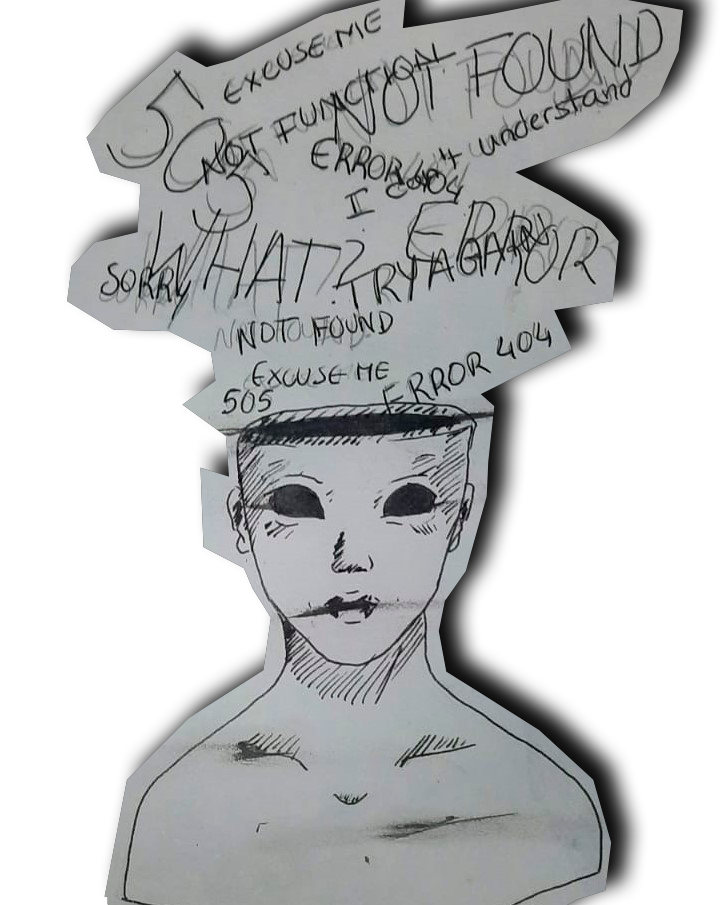 EXCUSE ME
505
NOT FUNCTION
NOT FOUND
ERROR 404
I can't understand
WHAT?
ERROR
SORRY
TRY AGAIN
NOT FOUND
EXCUSE ME
505
ERROR 404